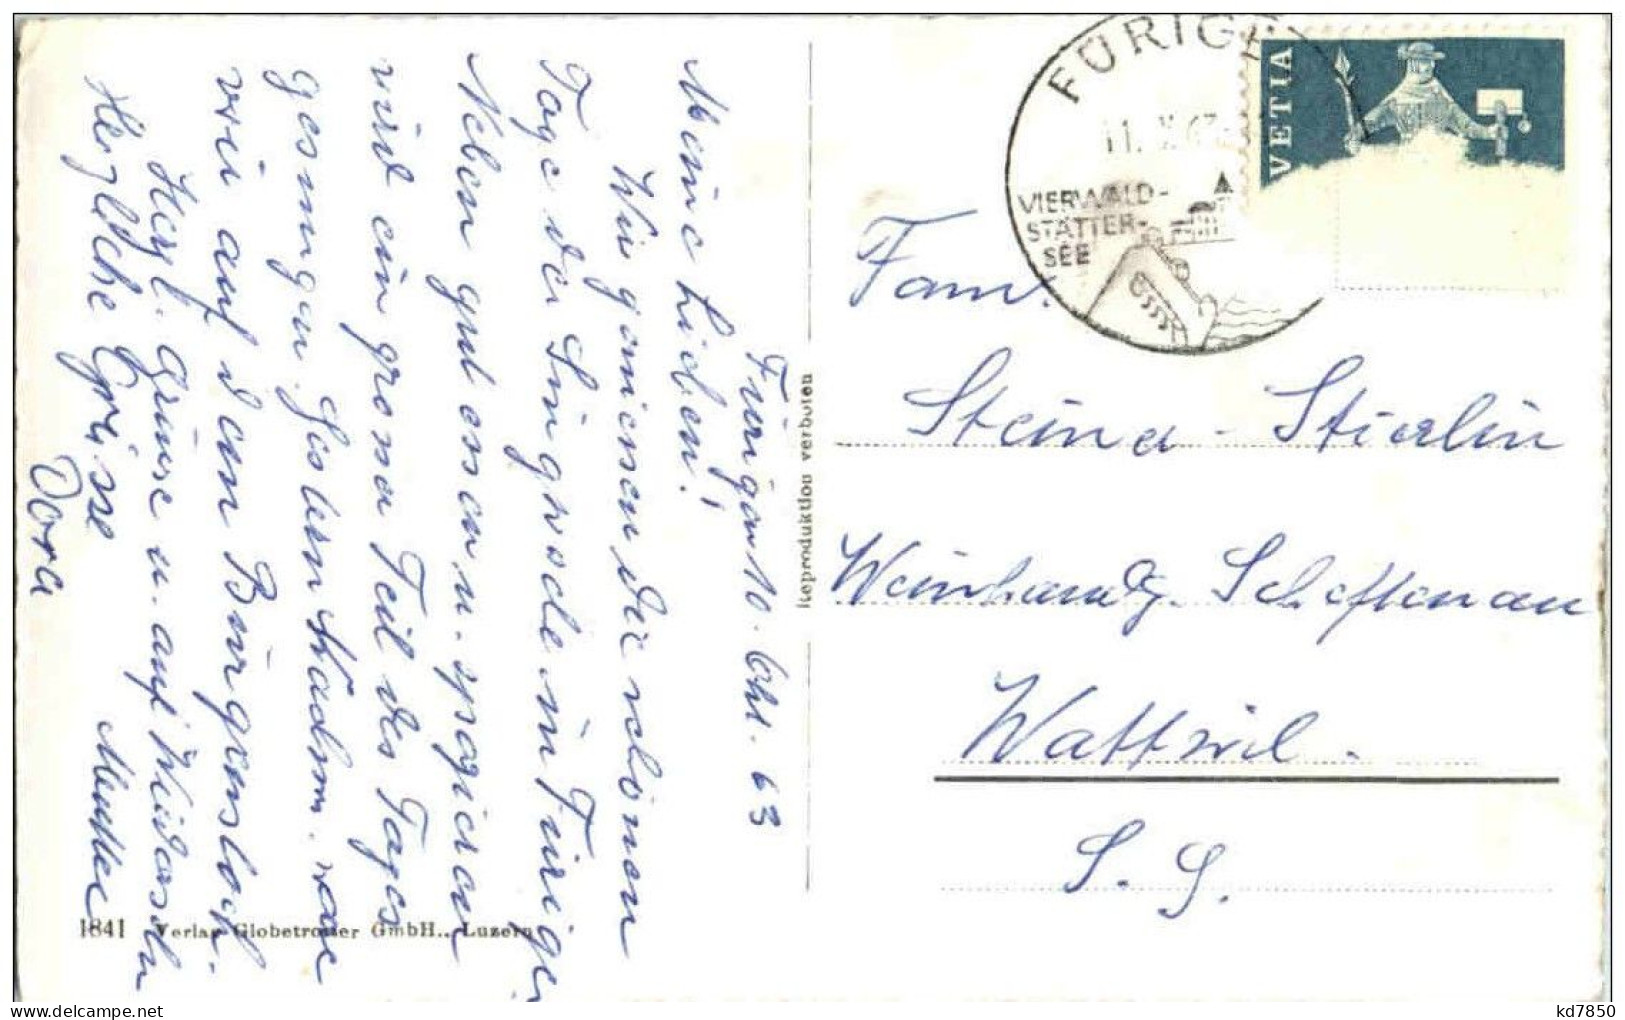 Fürigen 10. Okt. 63
Meine Lieben!
Wir geniessen die schönen
Tage der Singwoche in Fürigen
Neben gut essen u. spazieren
wird ein grosser Teil des Tages
gesungen. Gestern Nachm. war
wir auf dem Bürgenstock.
Herzl. Grüsse u. auf Wiedersehn
Mutter
Herzliche Grüsse
Dora
1841 Verlag Globetrotter GmbH., Luzern
Reproduktion verboten
FÜRIGEN
11. X. 63
VIERWALD-
STÄTTER-
SEE
HELVETIA
Fam.
Steiner - Stierlin
Weinhandlg. Scheftenau
Wattwil.
S. G.
kd7850